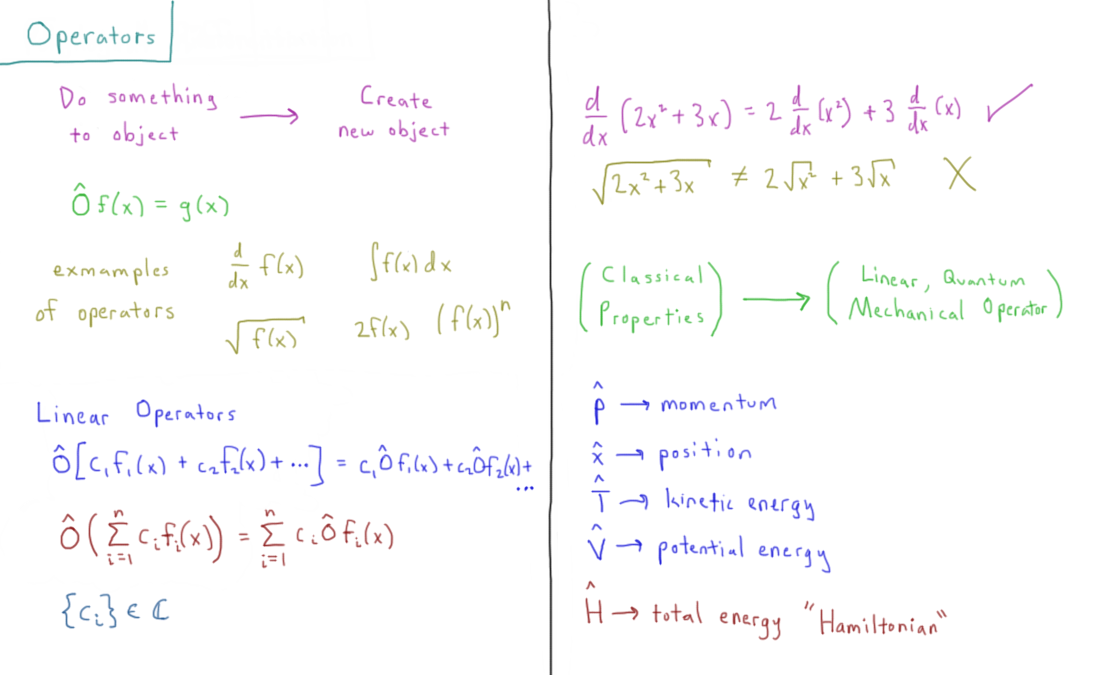 Operators
Do something → Create
to object new object
Ô f(x) = g(x)
exmamples d/dx f(x) ∫f(x) dx
of operators √f(x) 2f(x) (f(x))ⁿ
Linear Operators
Ô[c₁f₁(x) + c₂f₂(x) + ...] = c₁Ôf₁(x) + c₂Ôf₂(x) +
...
Ô(∑ᵢ₌₁ⁿ cᵢfᵢ(x)) = ∑ᵢ₌₁ⁿ cᵢÔfᵢ(x)
{cᵢ} ∈ ℂ
d/dx (2x² + 3x) = 2 d/dx (x²) + 3 d/dx (x) ✓
√2x² + 3x ≠ 2√x² + 3√x X
(Classical Properties) → (Linear, Quantum
Mechanical Operator)
p̂ → momentum
x̂ → position
T̂ → kinetic energy
V̂ → potential energy
Ĥ → total energy "Hamiltonian"